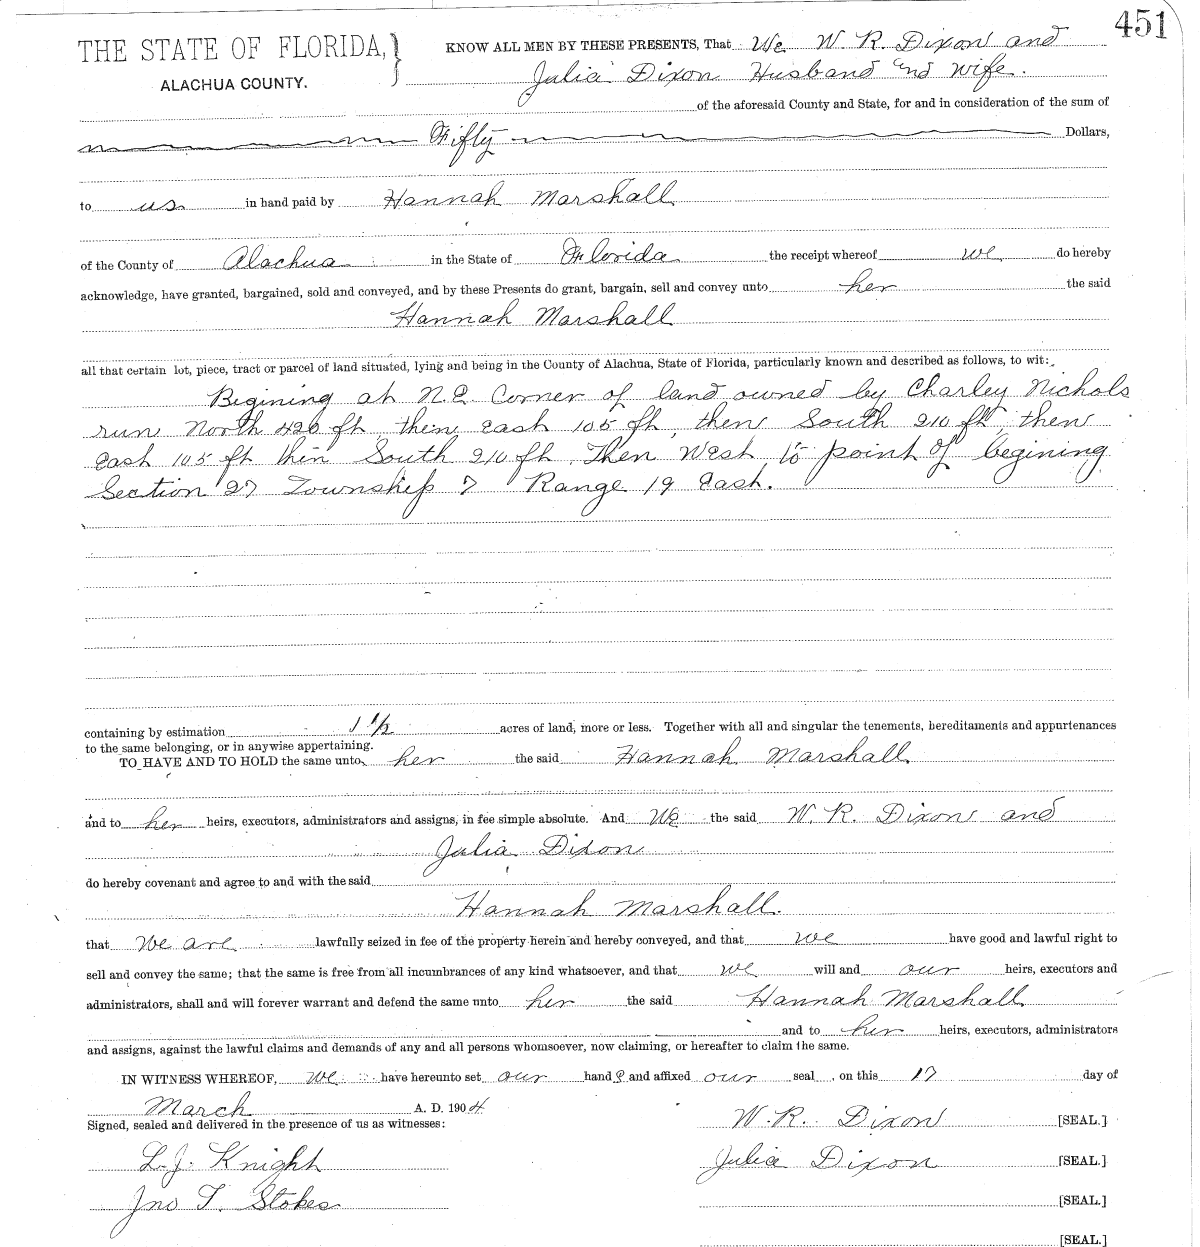 451
THE STATE OF FLORIDA, } KNOW ALL MEN BY THESE PRESENTS, That We W. R. Dixon and
ALACHUA COUNTY. Julia Dixon Husband and wife.
of the aforesaid County and State, for and in consideration of the sum of
Fifty Dollars,
to us in hand paid by Hannah Marshall
of the County of Alachua in the State of Florida the receipt whereof we do hereby
acknowledge, have granted, bargained, sold and conveyed, and by these Presents do grant, bargain, sell and convey unto her the said
Hannah Marshall
all that certain lot, piece, tract or parcel of land situated, lying and being in the County of Alachua, State of Florida, particularly known and described as follows, to wit:
Begining at N.E. Corner of land owned by Charley Nichols
run North 420 ft, then East 105 ft, then South 210 ft, then
East 105 ft then South 210 ft. Then West to point of begining
Section 27 Township 7 Range 19 East.
containing by estimation 1 1/2 acres of land, more or less. Together with all and singular the tenements, hereditaments and appurtenances
to the same belonging, or in anywise appertaining.
TO HAVE AND TO HOLD the same unto her the said Hannah Marshall
and to her heirs, executors, administrators and assigns, in fee simple absolute. And We the said W. R. Dixon and
Julia Dixon
do hereby covenant and agree to and with the said
Hannah Marshall.
that we are lawfully seized in fee of the property herein and hereby conveyed, and that we have good and lawful right to
sell and convey the same; that the same is free from all incumbrances of any kind whatsoever, and that we will and our heirs, executors and
administrators, shall and will forever warrant and defend the same unto her the said Hannah Marshall
and to her heirs, executors, administrators
and assigns, against the lawful claims and demands of any and all persons whomsoever, now claiming, or hereafter to claim the same.
IN WITNESS WHEREOF, we have hereunto set our hands and affixed our seal , on this 17 day of
March A. D. 1904
Signed, sealed and delivered in the presence of us as witnesses: W. R. Dixon [SEAL.]
L. J. Knight Julia Dixon [SEAL.]
Jno T. Stokes [SEAL.]
[SEAL.]